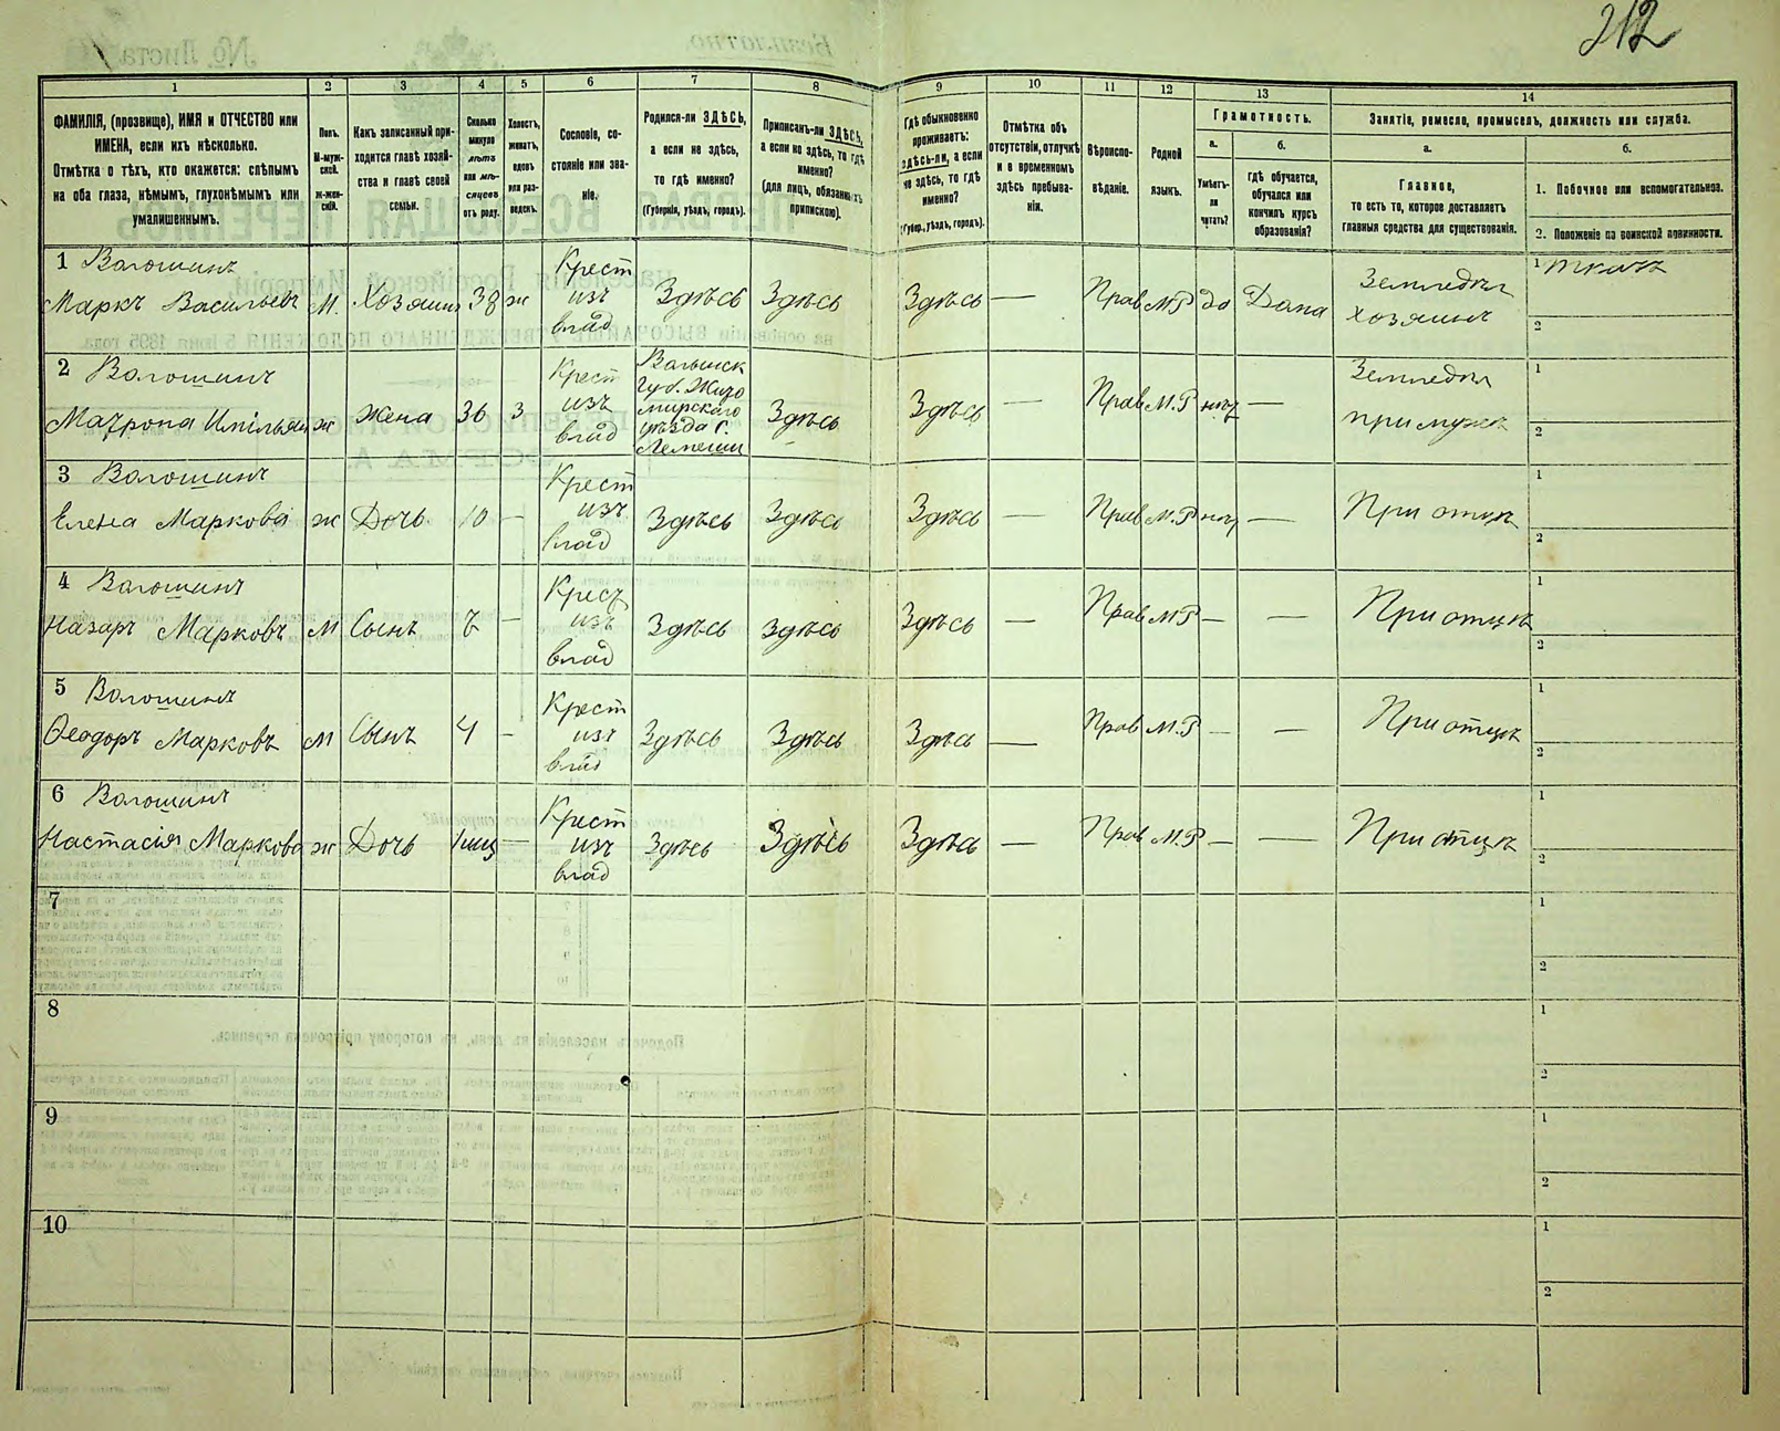 212
1
2
3
4
5
6
7
8
9
10
11
12
13
14
ФАМИЛІЯ, (прозвище), ИМЯ и ОТЧЕСТВО или
ИМЕНА, если ихъ нѣсколько.
Отмѣтка о тѣхъ, кто окажется: слѣпымъ
на оба глаза, нѣмымъ, глухонѣмымъ или
умалишеннымъ.
Полъ.
М-муж-
ской.
Ж-жен-
скій.
Какъ записанный при-
ходится главѣ хозяй-
ства и главѣ своей
семьи.
Сколько
минуло
лѣтъ
или мѣ-
сяцевъ
отъ роду.
Холостъ,
женатъ,
вдовъ
или раз-
веденъ.
Сословіе, со-
стояніе или зва-
ніе.
Родился-ли ЗДѢСЬ,
а если не здѣсь,
то гдѣ именно?
(Губернія, уѣздъ, городъ).
Приписанъ-ли ЗДѢСЬ,
а если не здѣсь, то гдѣ
именно?
(для лицъ, обязанныхъ
припискою).
Гдѣ обыкновенно
проживаетъ:
здѣсь-ли, а если
не здѣсь, то гдѣ
именно?
(Губер., уѣздъ, городъ).
Отмѣтка объ
отсутствіи, отлучкѣ
и о временномъ
здѣсь пребыва-
ніи.
Вѣроиспо-
вѣданіе.
Родной
языкъ.
Грамотность.
а.
Умѣетъ-
ли
читать?
б.
гдѣ обучается,
обучался или
кончилъ курсъ
образованія?
Занятіе, ремесло, промыселъ, должность или служба.
а.
Главное,
то есть то, которое доставляетъ
главныя средства для существованія.
б.
1. Побочное или вспомогательное.
2. Положеніе по воинской повинности.
1 Волошинъ
Маркъ Васильевъ
М.
Хозяинъ
38
ж
Крест
изъ
влад
Здѣсь
Здѣсь
Здѣсь
—
Прав
М.Р
да
Дома
Земледѣл
хозяинъ
1 ткачъ
2
2 Волошинъ
Матрона Имільян
ж
жена
36
з
Крест
изъ
влад
Волынск
губ. Жито
мирскаго
уѣзда с.
Лемеши
Здѣсь
Здѣсь
—
Прав
М.Р
нѣт
—
Земледѣл
при мужѣ
1
2
3 Волошинъ
Елена Маркова
ж
Дочь
10
—
Крест
изъ
влад
Здѣсь
Здѣсь
Здѣсь
—
Прав
М.Р
нѣт
—
При отцѣ
1
2
4 Волошинъ
Назаръ Марковъ
М
Сынъ
7
—
Крест
изъ
влад
Здѣсь
Здѣсь
Здѣсь
—
Прав
М.Р
—
—
При отцѣ
1
2
5 Волошинъ
Ѳеодоръ Марковъ
М
Сынъ
4
—
Крест
изъ
влад
Здѣсь
Здѣсь
Здѣсь
—
Прав
М.Р
—
—
При отцѣ
1
2
6 Волошинъ
Настасія Маркова
ж
Дочь
1мц
—
Крест
изъ
влад
Здѣсь
Здѣсь
Здѣсь
—
Прав
М.Р
—
—
При отцѣ
1
2
7
1
2
8
1
2
9
1
2
10
1
2